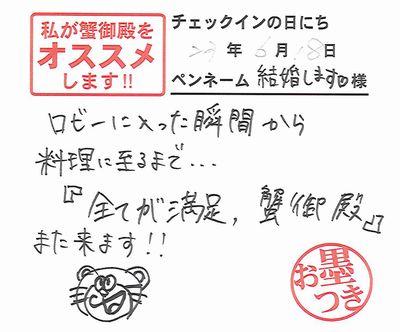 私が蟹御殿を
オススメ
します!!
チェックインの日にち
27年 6月 18日
ペンネーム 結婚します様
ロビーに入った瞬間から
料理に至るまで...
『全てが満足，蟹御殿』
また来ます!!
お墨つき